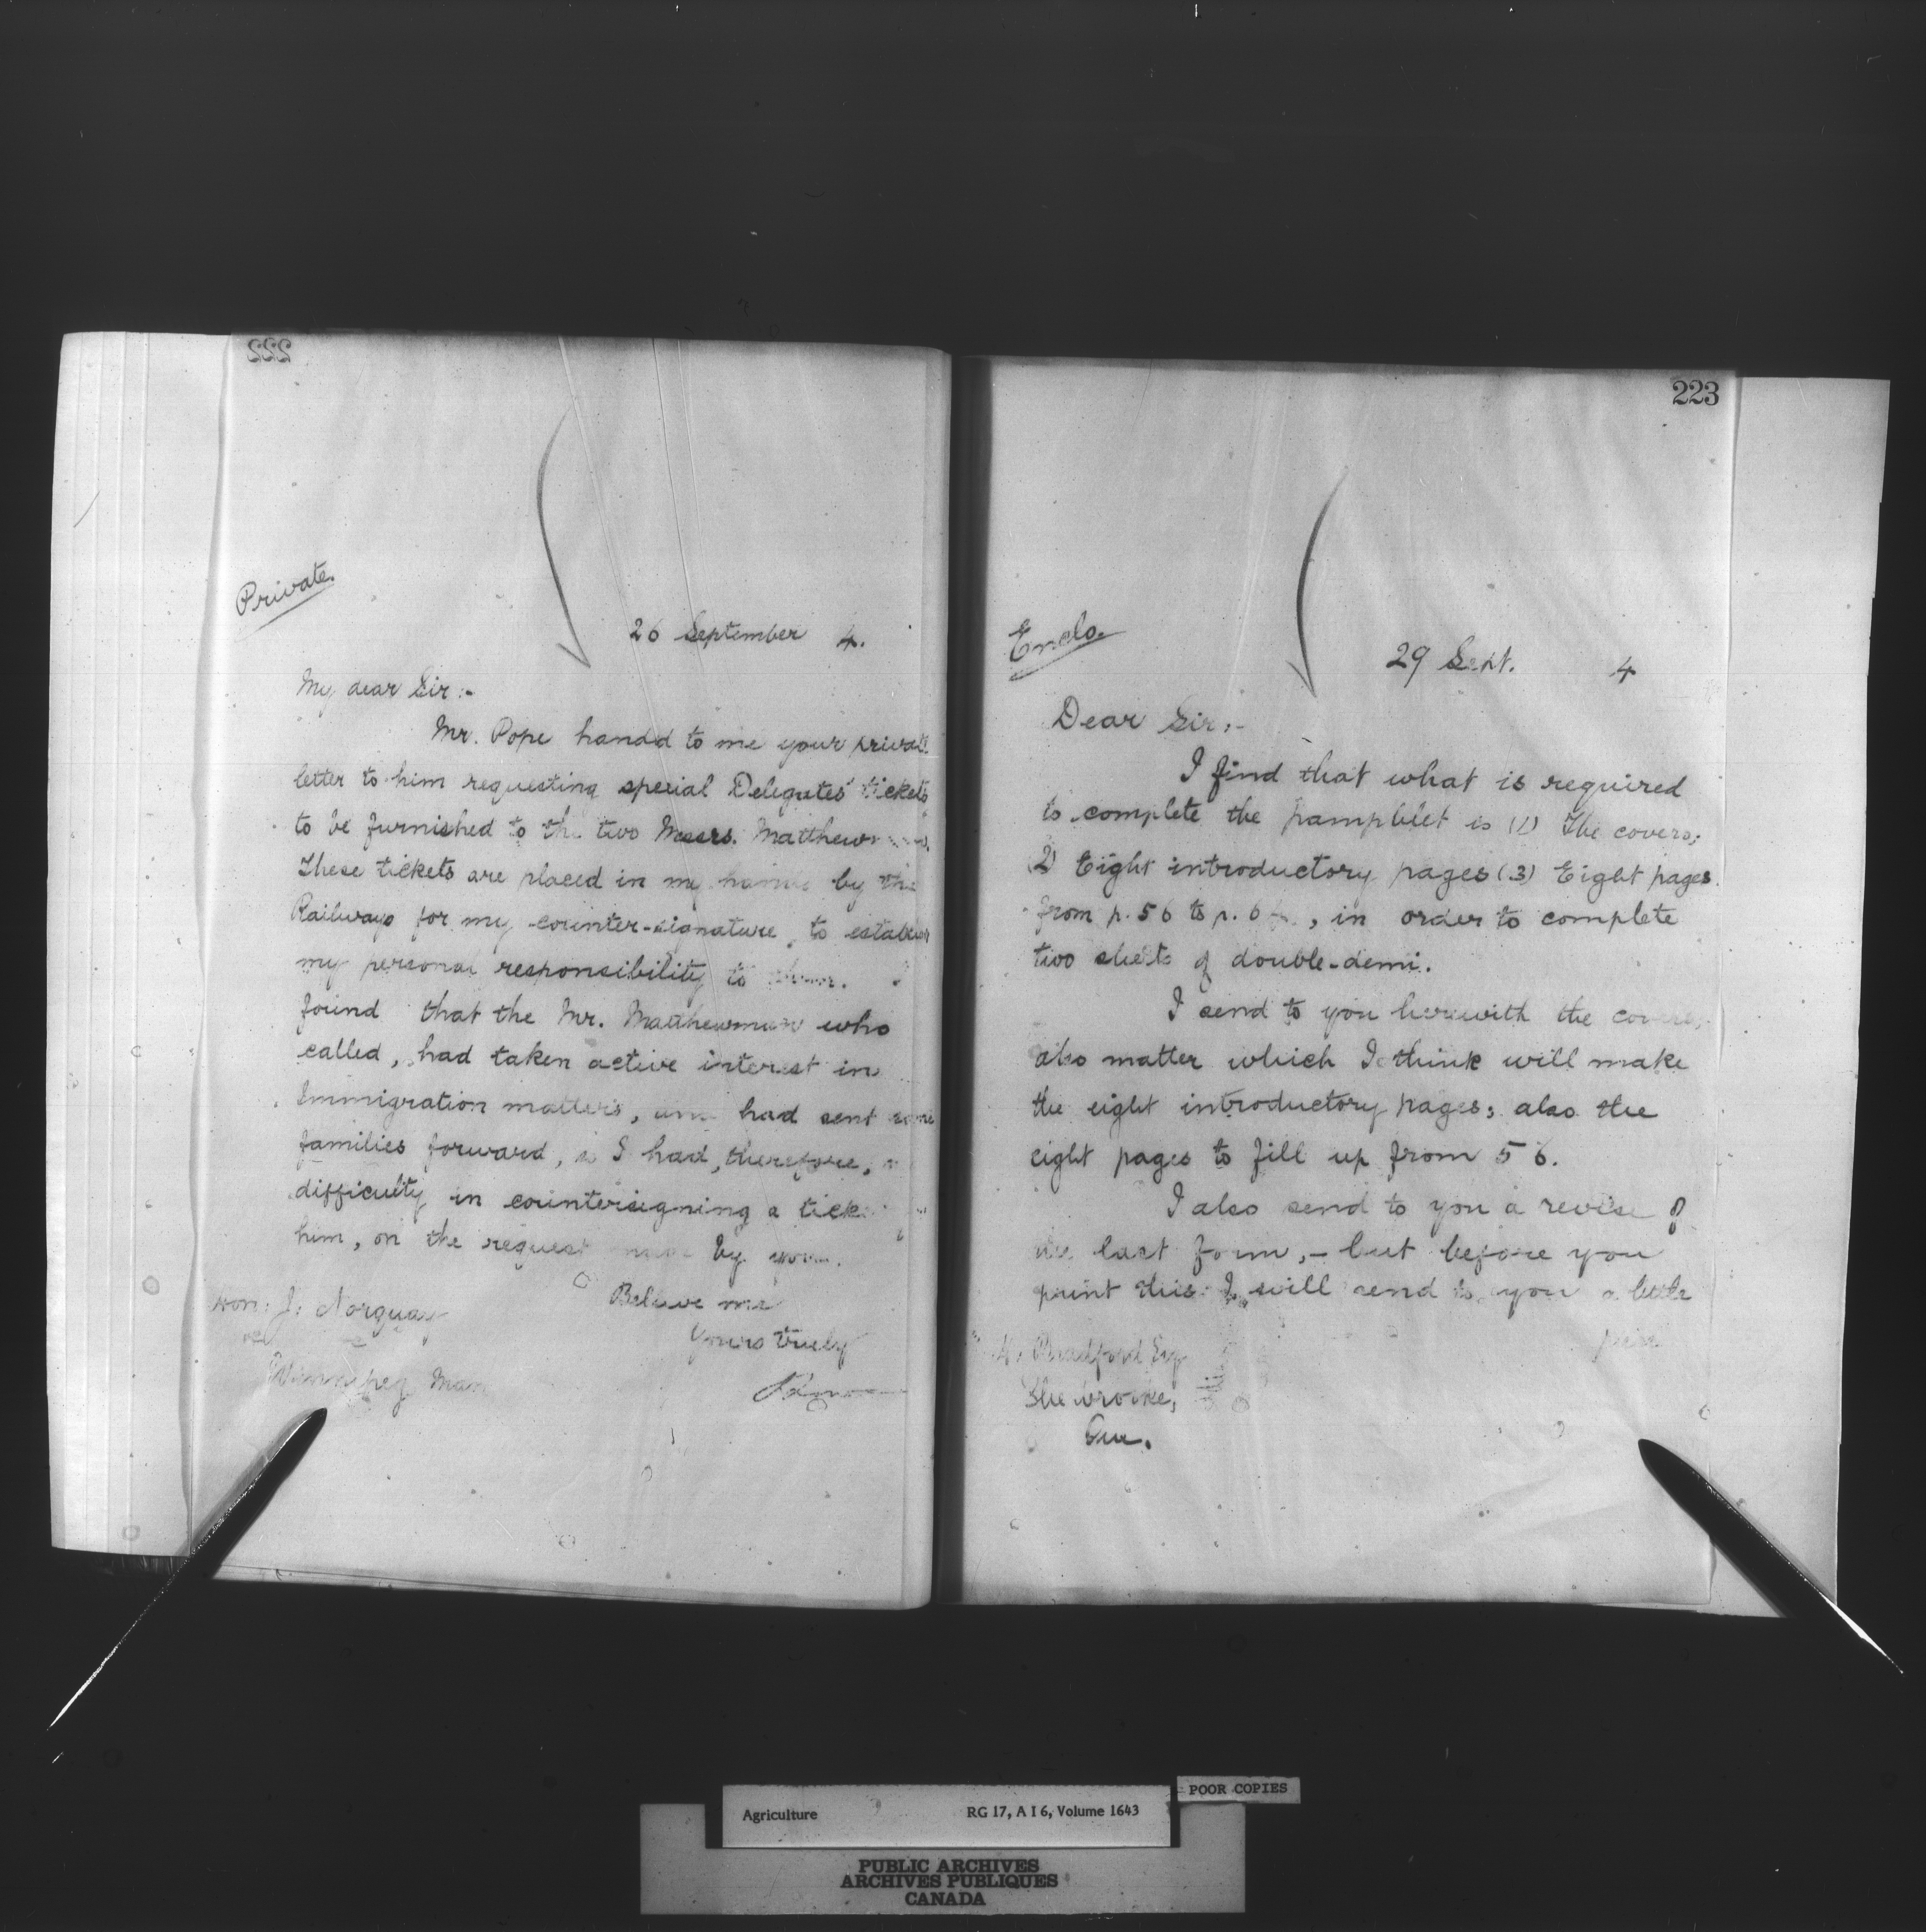 222
Private.
26 September 4.
My dear Sir:-
Mr. Pope handed to me your private
letter to him requesting special Delegates' tickets
to be furnished to the two Messrs. Matthewman.
These tickets are placed in my hands by the
Railways for my counter-signature, to establish
my personal responsibility to them.
found that the Mr. Matthewman who
called, had taken active interest in
Immigration matters, and had sent some
families forward, & I had, therefore,
difficulty in countersigning a ticket
him, on the request made by you.
Believe me
Yours truly
Hon. J. Norquay
Winnipeg Man
223
Enclo.
29 Sept. 4
Dear Sir:-
I find that what is required
to complete the pamphlet is (1) The covers;
2) Eight introductory pages (3) Eight pages
from p. 56 to p. , in order to complete
two sheets of double-demi.
I send to you herewith the covers,
also matter which I think will make
the eight introductory pages; also the
eight pages to fill up from 56.
I also send to you a revise of
the last form, - but before you
print this I will send to you a little
Bradford Esq
Sherbrooke,
Que.
POOR COPIES
Agriculture RG 17, A I 6, Volume 1643
PUBLIC ARCHIVES
ARCHIVES PUBLIQUES
CANADA